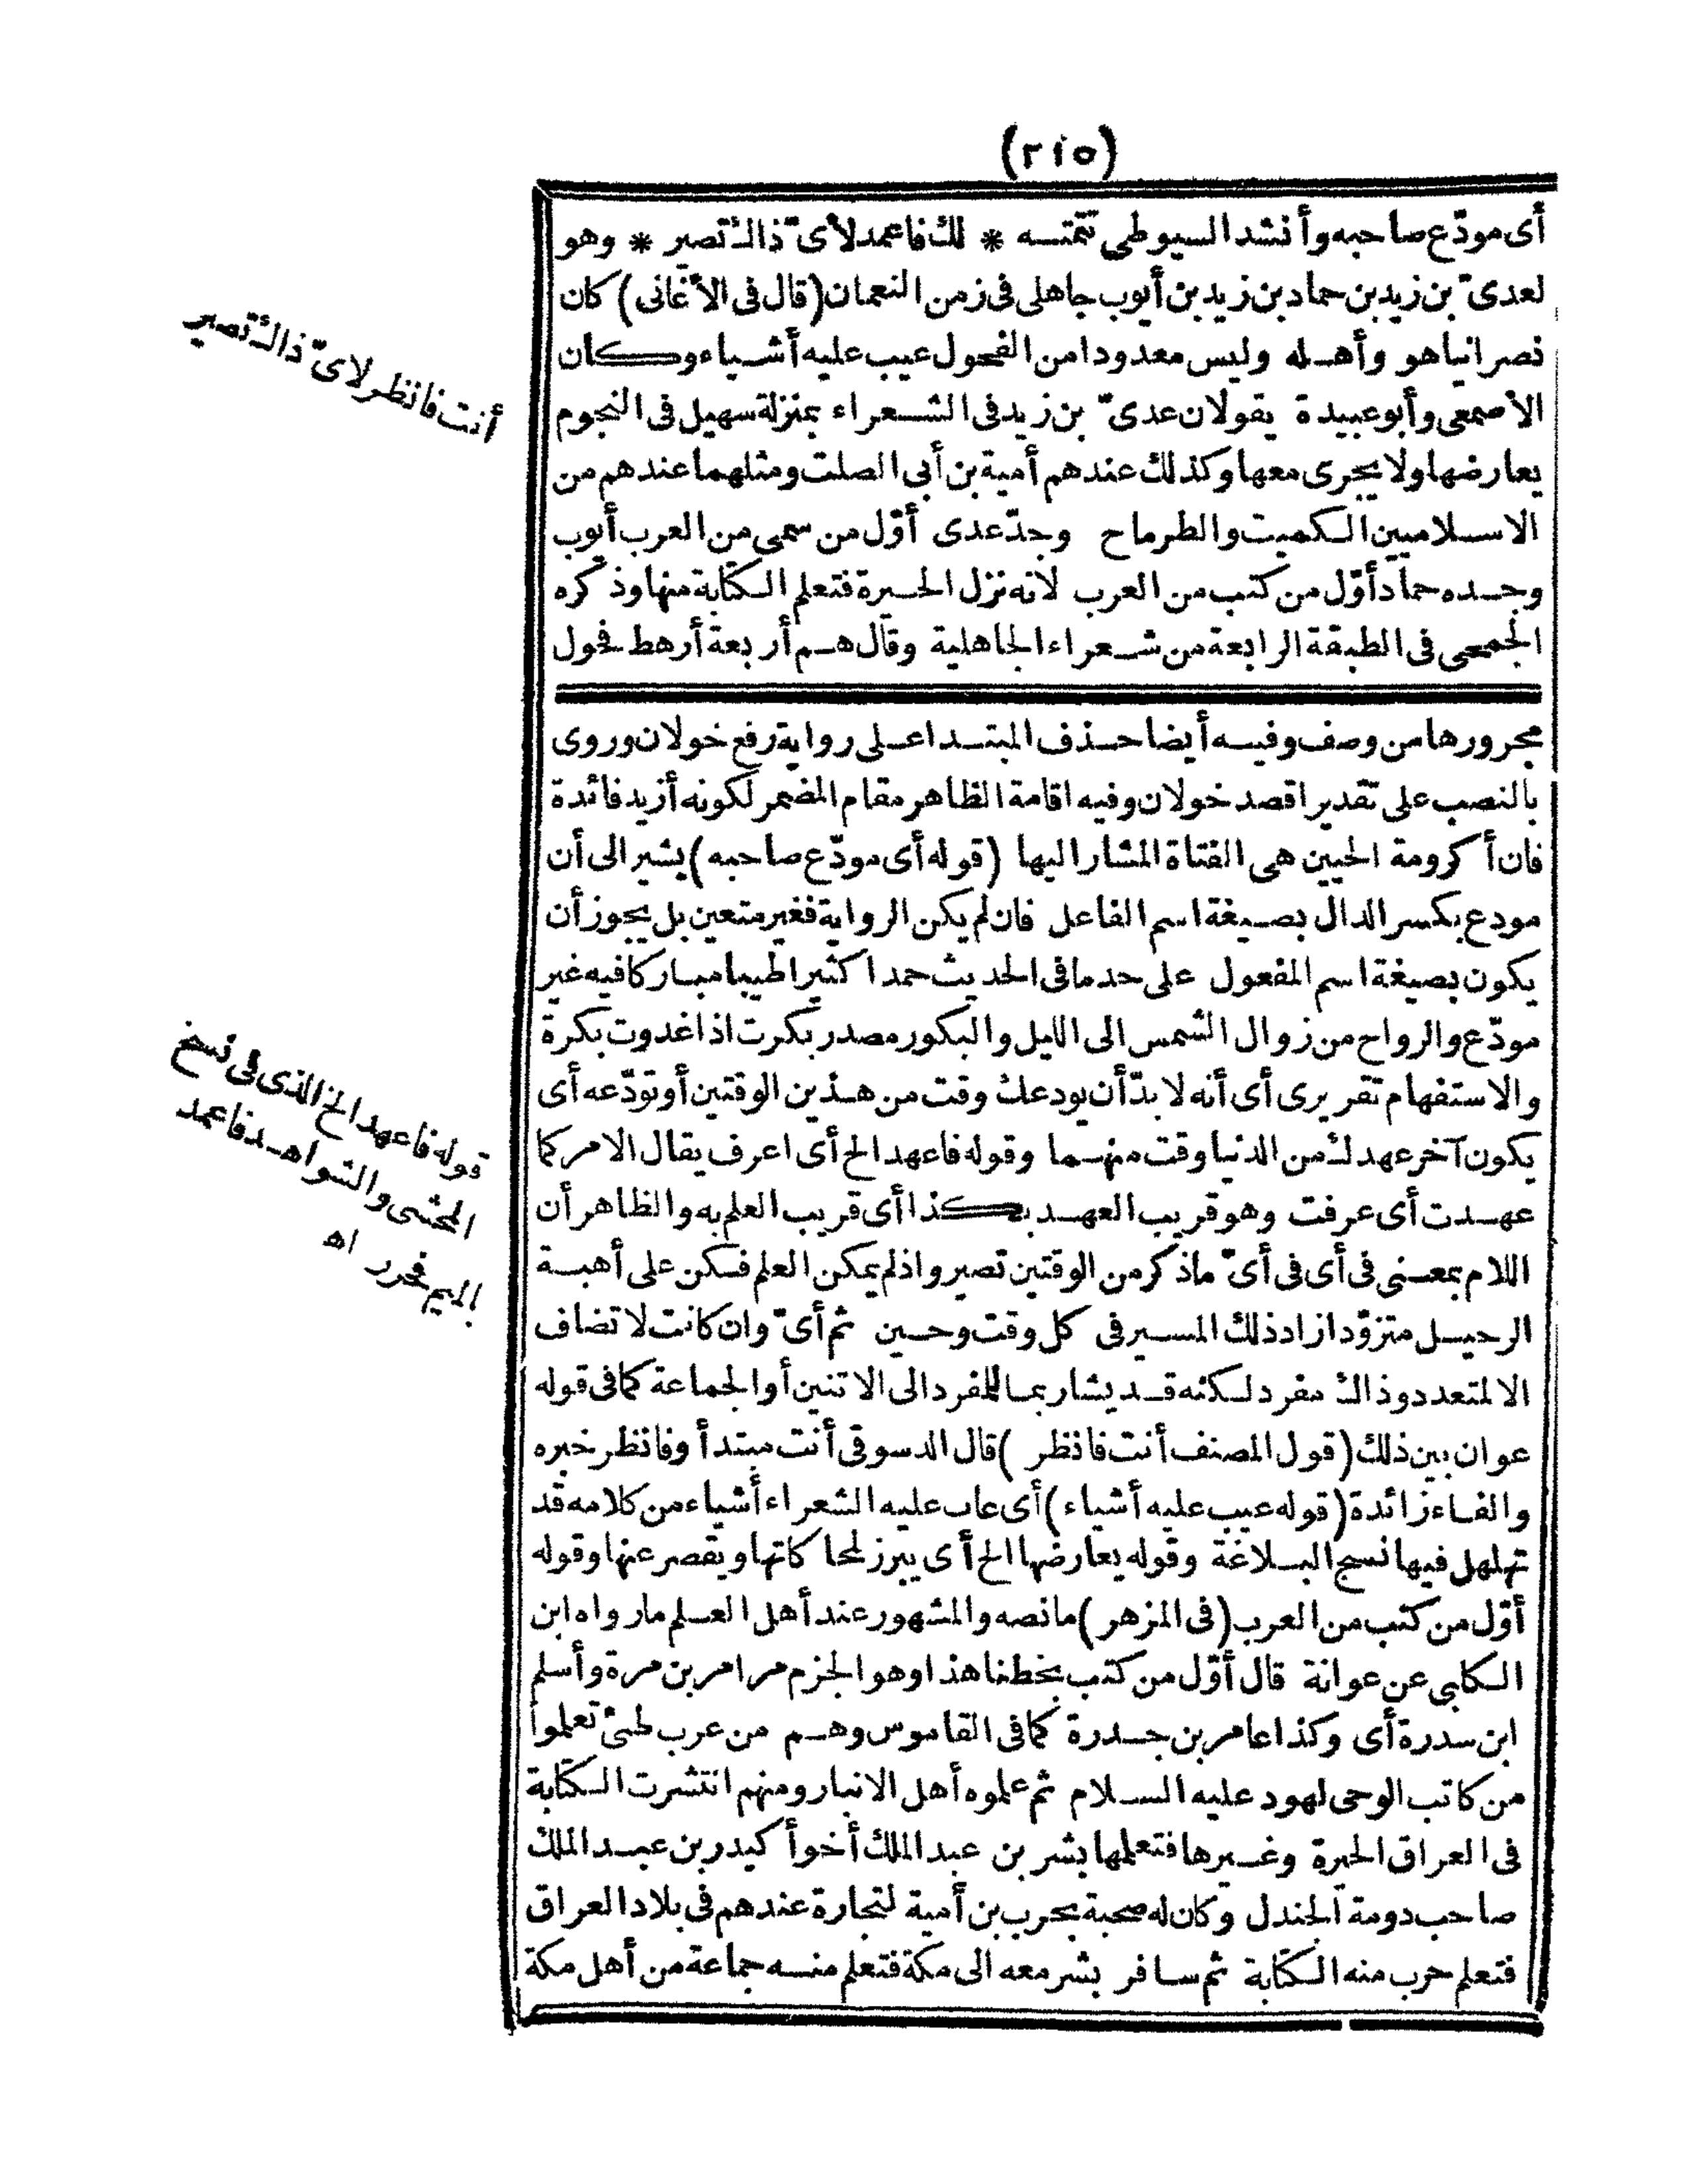 (٢١٥)
أى مودّع صاحبه وأنشد السيوطى تتمته * لك فاعمد لأىّ ذاك تصير * وهو
لعدىّ بن زيد بن حماد بن زيد بن أيوب جاهلى فى زمن النعمان (قال فى الأغانى) كان
نصرانيا هو وأهله وليس معدودا من الفحول عيب عليه أشياء وكان
الأصمعى وأبو عبيدة يقولان عدىّ بن زيد فى الشعراء بمنزلة سهيل فى النجوم
يعارضها ولا يجرى معها وكذلك عندهم أمية بن أبى الصلت ومثلهما عندهم من
الاسلاميين الكميت والطرماح وجدّ عدى أوّل من سمى من العرب أيوب
وجده حماد أوّل من كتب من العرب لانه نزل الحيرة فتعلم الكتابة منها وذكره
الجمحى فى الطبقة الرابعة من شعراء الجاهلية وقال هم أربعة أرهط فحول
مجرورها من وصف وفيه أيضا حذف المبتدا على رواية رفع خولان وروى
بالنصب على تقدير اقصد خولان وفيه اقامة الظاهر مقام المضمر لكونه أزيد فائدة
فان أكرومة الحيين هى الفتاة المشار اليها (قوله أى مودّع صاحبه) يشير الى أن
مودع بكسر الدال بصيغة اسم الفاعل فان لم يكن الرواية فغير متعين بل يجوز أن
يكون بصيغة اسم المفعول على حد ما فى الحديث حمدا كثيرا طيبا مباركا فيه غير
مودّع والرواح من زوال الشمس الى الليل والبكور مصدر بكرت اذا غدوت بكرة
والاستفهام تقريرى أى أنه لا بدّ أن يودعك وقت من هذين الوقتين أو تودّعه أى
يكون آخر عهدك من الدنيا وقت منهما وقوله فاعهد الخ أى اعرف يقال الامر كما
عهدت أى عرفت وهو قريب العهد بكذا أى قريب العلم به والظاهر أن
اللام بمعنى فى أى فى أىّ ماذكر من الوقتين تصير واذ لم يمكن العلم فسكن على أهبة
الرحيل متزوّدا زاد ذلك المسير فى كل وقت وحين ثم أىّ وان كانت لا تضاف
الا لمتعدد وذاك مفرد لكنه قد يشار بما للمفرد الى الاثنين أو الجماعة كما فى قوله
عوان بين ذلك (قول المصنف أنت فانظر) قال الدسوقى أنت مبتدأ وفانظر خبره
والفاء زائدة (قوله عيب عليه أشياء) أى عاب عليه الشعراء أشياء من كلامه قد
تهلهل فيها نسج البلاغة وقوله يعارضها الخ أى يبرز لمحاكاتها ويقصر عنها وقوله
أوّل من كتب من العرب (فى المزهر) ما نصه والمشهور عند أهل العلم مارواه ابن
الكلبى عن عوانة قال أوّل من كتب بخطنا هذا وهو الجزم مرامر بن مرة وأسلم
ابن سدرة أى وكذا عامر بن جدرة كما فى القاموس وهم من عرب طيئ تعلموا
من كاتب الوحى لهود عليه السلام ثم علموه أهل الانبار ومنهم انتشرت الكتابة
فى العراق الحيرة وغيرها فتعلمها بشر بن عبد الملك أخو أكيدر بن عبد الملك
صاحب دومة الجندل وكان له صحبة بحرب بن أمية لتجارة عندهم فى بلاد العراق
فتعلم حرب منه الكتابة ثم سافر بشر معه الى مكة فتعلم منه جماعة من أهل مكة
أنت فانظر لاىّ ذاك تصير
قوله فاعهد الخ الذى فى نسخ
المحشى والشواهد فاعمد
بالميم فحرر اه